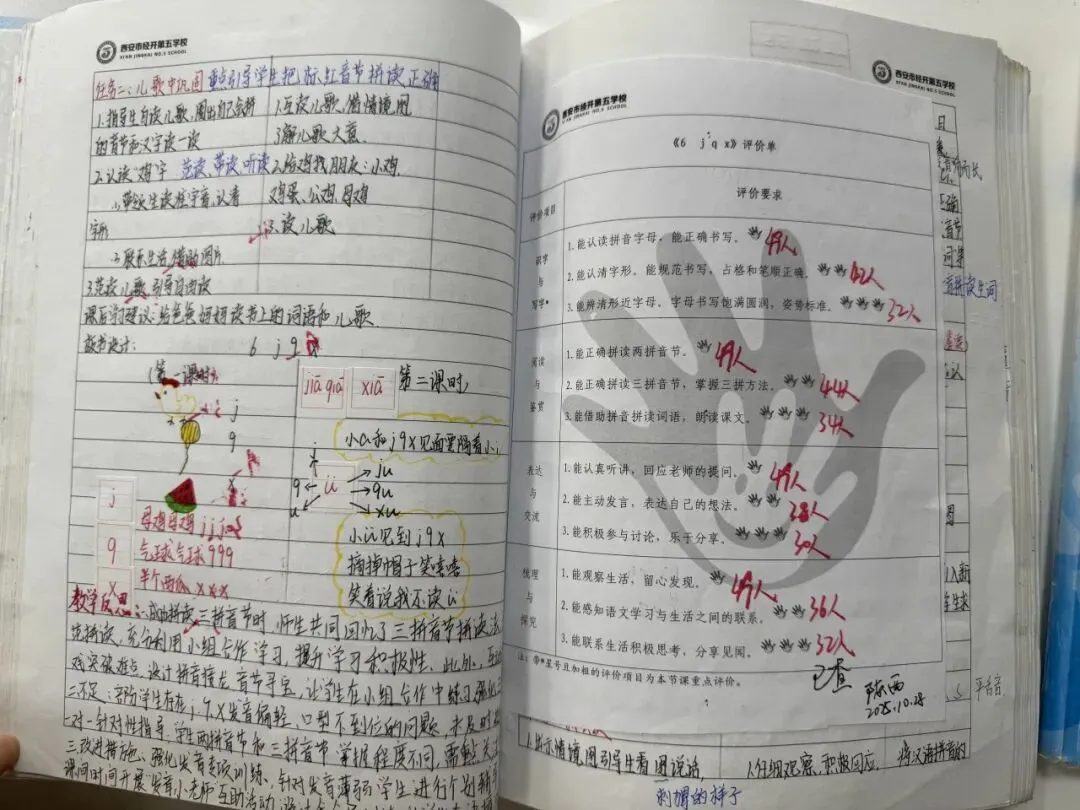 西安市经开第五学校
XI'AN JINGKAI NO.5 SCHOOL
任务二:儿歌中巩固 重点引导学生把标红音节拼读正确
1.指导生自读儿歌,圈出自己会拼
的音节和汉字读一读
1.互读儿歌,借情境图
了解儿歌大意.
2.认读"鸡"字 范读、带读、听读
2.给鸡找朋友:小鸡.
鸡蛋、公鸡、母鸡
字形
3.读儿歌
3.范读儿歌 引导自由读
课后学习建议:给爸爸妈妈读书上的词语和儿歌.
板书设计:
6 j q x
(第一课时)
jiā qiā xiā
第二课时
小a和jqx见面要隔着小i
j
q
x
j
q
x
母鸡母鸡 j j j
气球气球 q q q
半个西瓜 x x x
ü
ju
qu
xu
小ü见到jqx
摘掉帽子笑嘻嘻
笑着说我不读ü
教学反思:
一.成功:拼读三拼音节时,师生共同回忆了三拼音节拼读法
先拼读,充分利用小组合作学习,提升学习积极性.此外,互动
戏突破难点,设计拼音接龙,音节寻宝,让学生在小组合作中练习
二.不足:部分学生存在j、q、x发音偏轻,口型不到位的问题,未及时
一对一针对性指导,学生两拼音节和三拼音节掌握程度不同,需
三.改进措施:强化发音专项训练,针对发音薄弱学生进行个别辅
课间时间开展"发音小老师"互助活动
西安市经开第五学校
XI'AN JINGKAI NO.5 SCHOOL
西安市经开第五学校
XI'AN JINGKAI NO.5 SCHOOL
《6 j q x》评价单
评价项目
评价要求
识字与写字*
1.能认读拼音字母,能正确书写。 49人
2.能认清字形。能规范书写,占格和笔顺正确。 42人
3.能辨清形近字母。字母书写饱满圆润,姿势标准。 32人
阅读与鉴赏
1.能正确拼读两拼音节。 49人
2.能正确拼读三拼音节,掌握三拼方法。 44人
3.能借助拼音拼读词语,朗读课文。 34人
表达与交流
1.能认真听讲,回应老师的提问。 49人
2.能主动发言,表达自己的想法。 38人
3.能积极参与讨论,乐于分享。 30人
梳理与探究
1.能观察生活,留心发现。 49人
2.能感知语文学习与生活之间的联系。 36人
3.能联系生活积极思考,分享见闻。 32人
注:带*星号且加粗的评价项目为本节课重点评价。
已查
2025.10.28
平舌音
1.出示情境图引导生看图说话,
1.仔细观察,积极回应.
将汉语拼音的
刺猬的样子